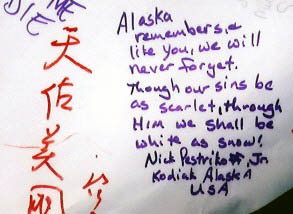 ME
DIE
天佑美国
Alaska
remembers, e
like You, we will
never forget.
Though our sins be
as scarlet, through
Him we shall be
white as snow!
Nick Pestrikoff, Jr
Kodiak Alaska
USA